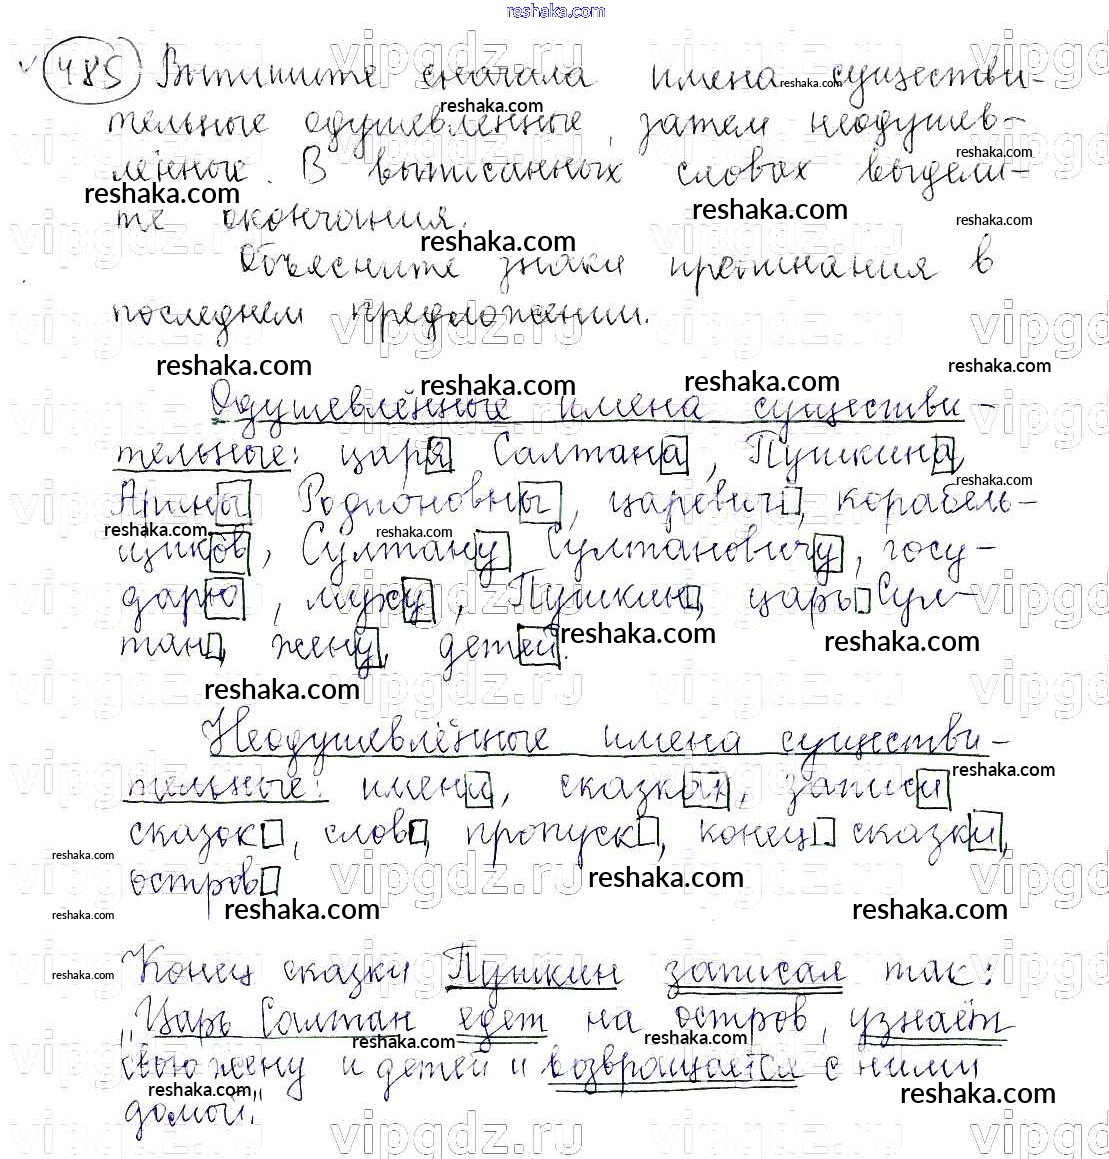 reshaka.com
485 Выпишите сначала имена существи-
тельные одушевлённые, затем неодушев-
лённые. В выписанных словах выдели-
те окончания.
Объясните знаки препинания в
последнем предложении.
Одушевлённые имена существи-
тельные: царя Салтана, Пушкина,
Арины Родионовны, царевич, корабель-
щиков, Султану Султановичу, госу-
дарю, мужу, Пушкин, царь Сул-
тан, жену, детей.
Неодушевлённые имена существи-
тельные: имени, сказках, записи
сказок, слов, пропуск, конец сказки,
остров
Конец сказки Пушкин записал так:
"Царь Салтан едет на остров, узнаёт
свою жену и детей и возвращается с ними
домой".